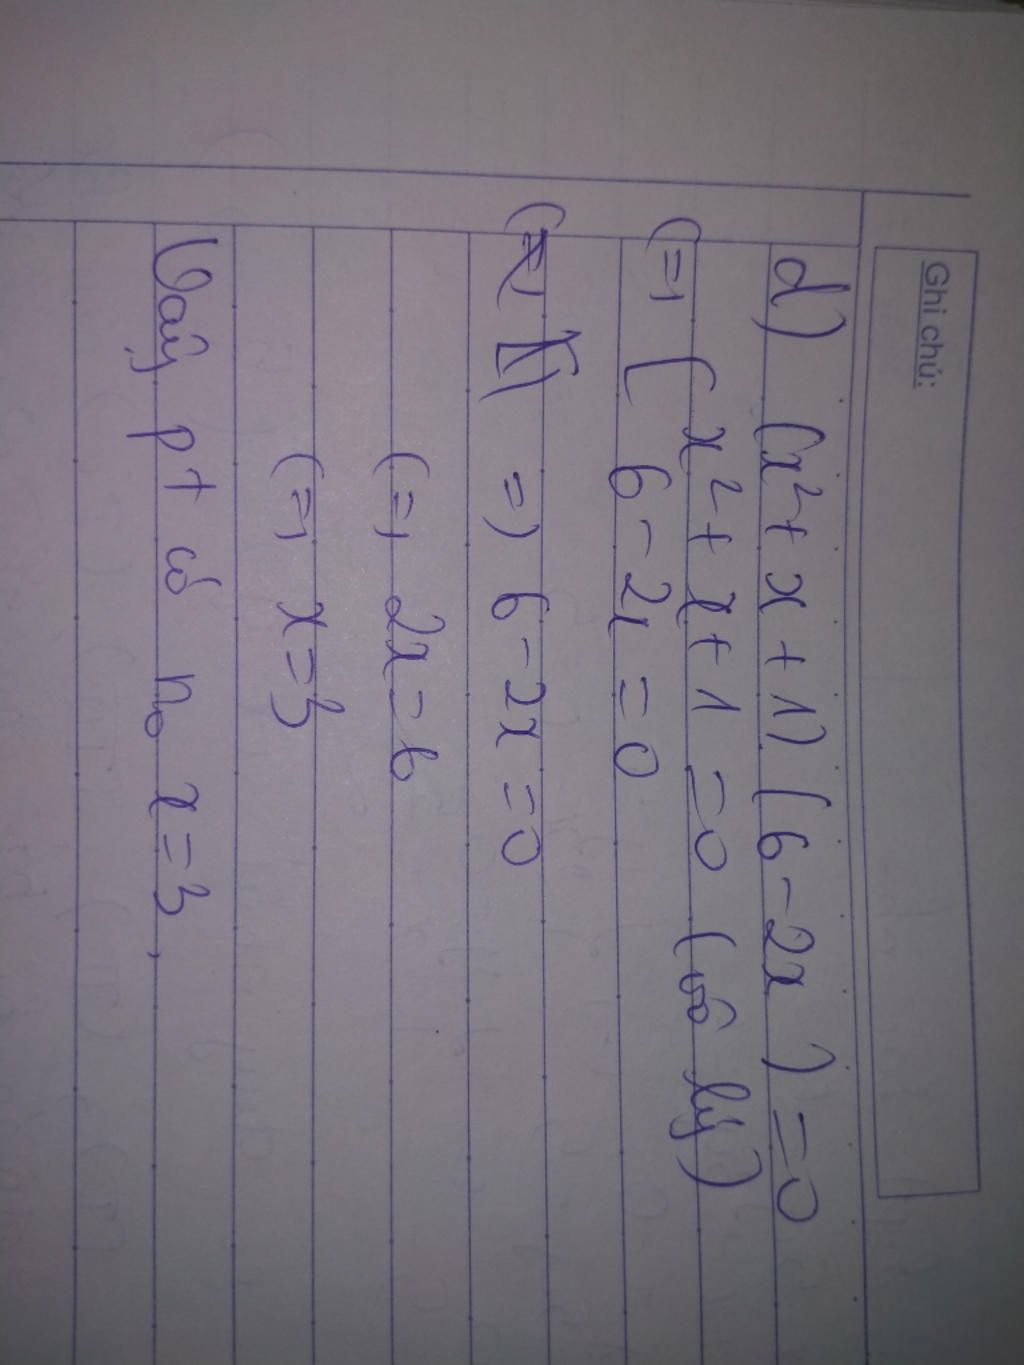 Ghi chú:
d) (x²+x+1)(6-2x)=0
(=) [ x²+x+1=0 (vô lý)
6-2x=0
=) 6-2x=0
(=) 2x=6
(=) x=3
Vaậy pt có no x=3.